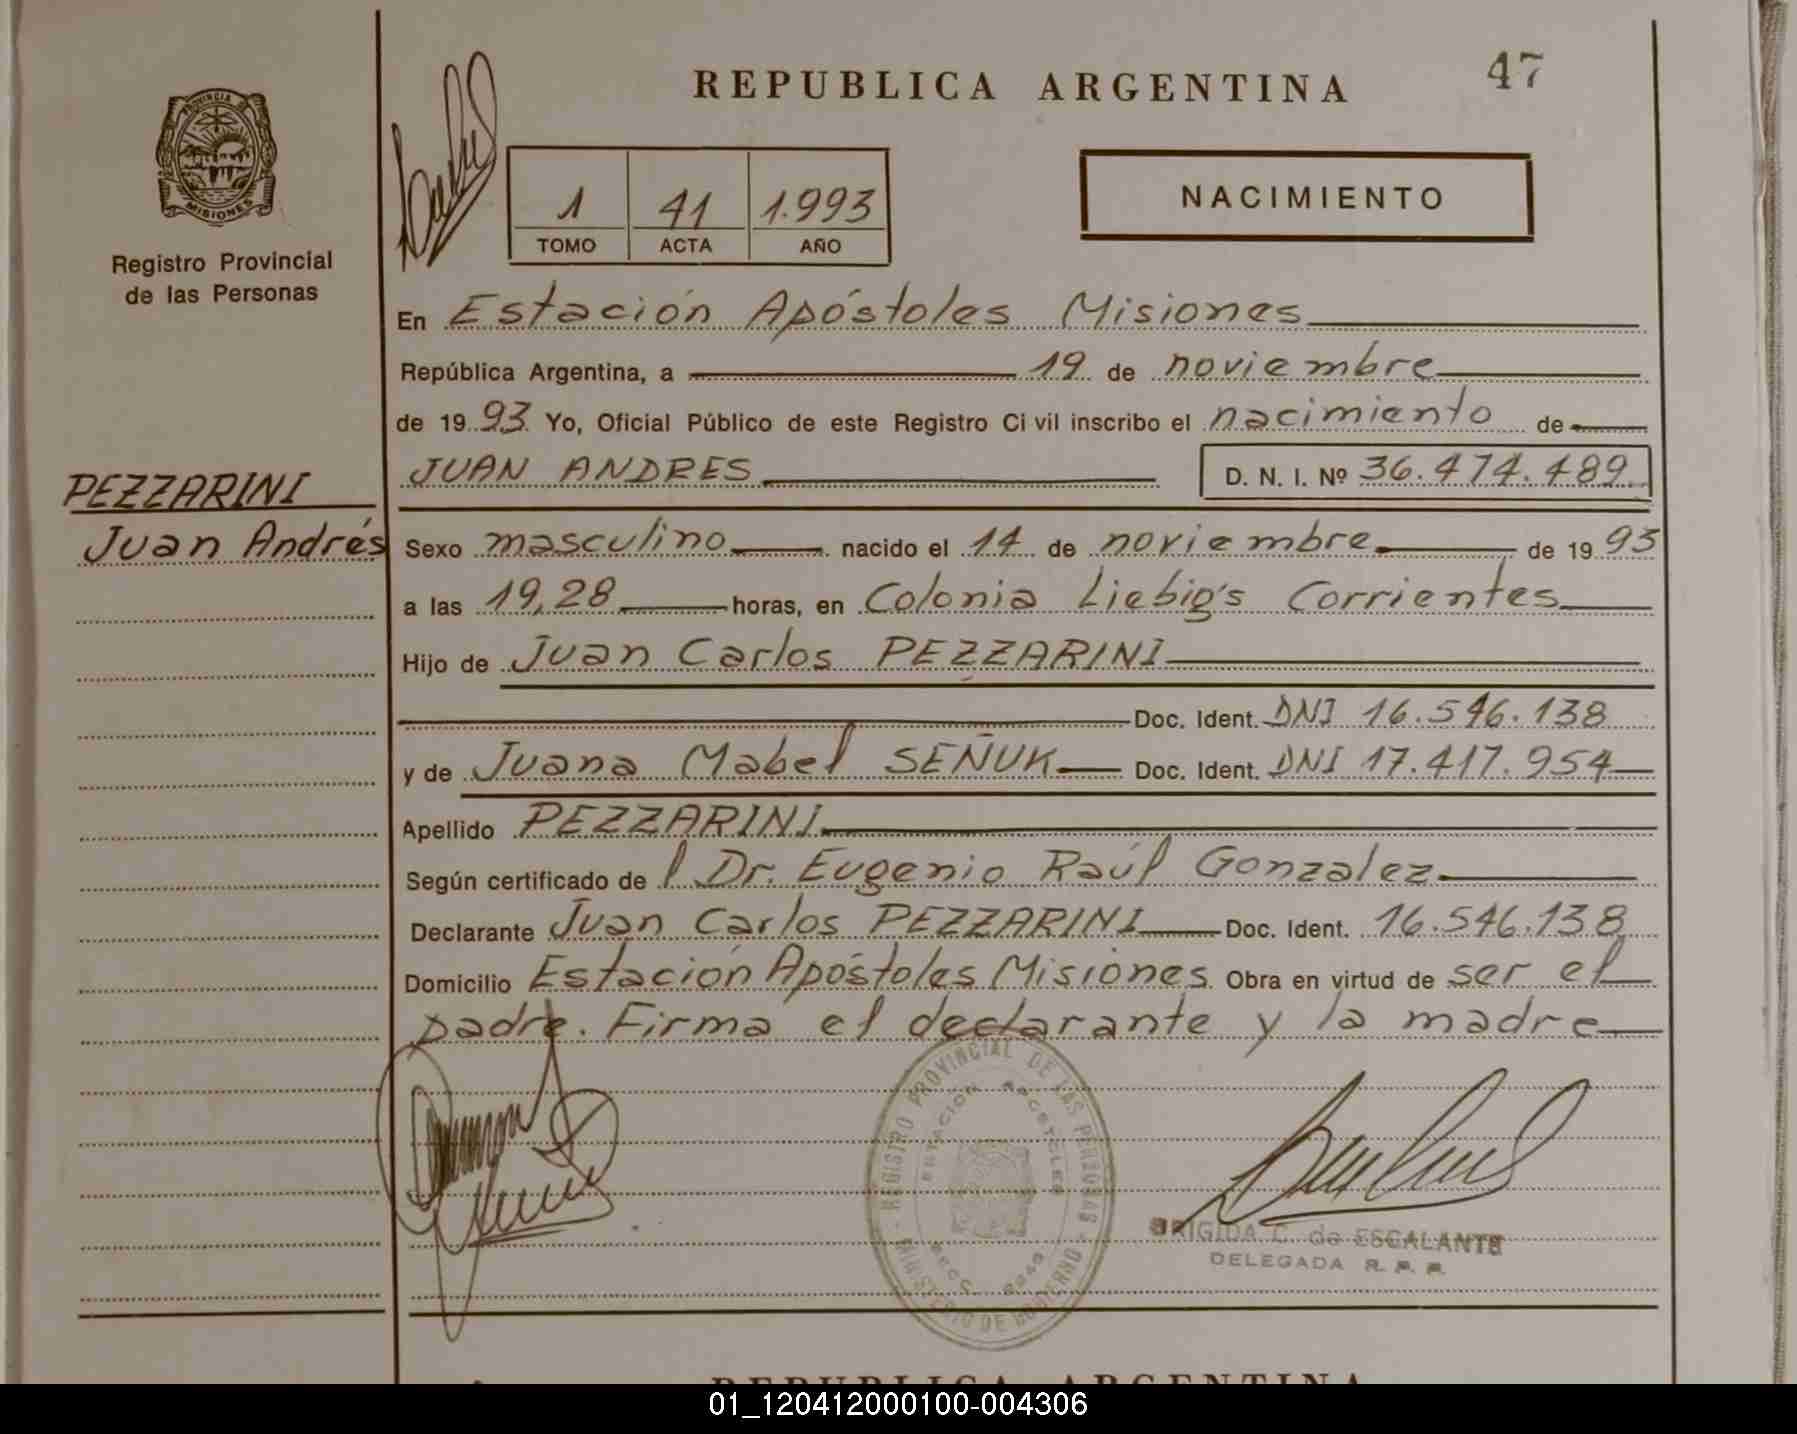 REPUBLICA ARGENTINA
47
PROVINCIA DE
MISIONES
Registro Provincial
de las Personas
1 41 1.993
TOMO ACTA AÑO
NACIMIENTO
En Estación Apóstoles Misiones
República Argentina, a 19 de noviembre
de 19 93 Yo, Oficial Público de este Registro Civil inscribo el nacimiento de
JUAN ANDRES D. N. I. Nº 36.474.489
PEZZARINI
Juan Andrés
Sexo masculino nacido el 14 de noviembre de 19 93
a las 19,28 horas, en Colonia Liebig's Corrientes
Hijo de Juan Carlos PEZZARINI
Doc. Ident. DNI 16.546.138
y de Juana Mabel SEÑUK Doc. Ident. DNI 17.417.954
Apellido PEZZARINI
Según certificado de l Dr. Eugenio Raúl Gonzalez
Declarante Juan Carlos PEZZARINI Doc. Ident. 16.546.138
Domicilio Estación Apóstoles Misiones Obra en virtud de ser el
padre. Firma el declarante y la madre
REGISTRO PROVINCIAL DE LAS PERSONAS
MINISTERIO DE GOBIERNO
ESTACION APOSTOLES
BRIGIDA C. de ESCALANTE
DELEGADA R. P. P.
REPUBLICA ARGENTINA
01_120412000100-004306